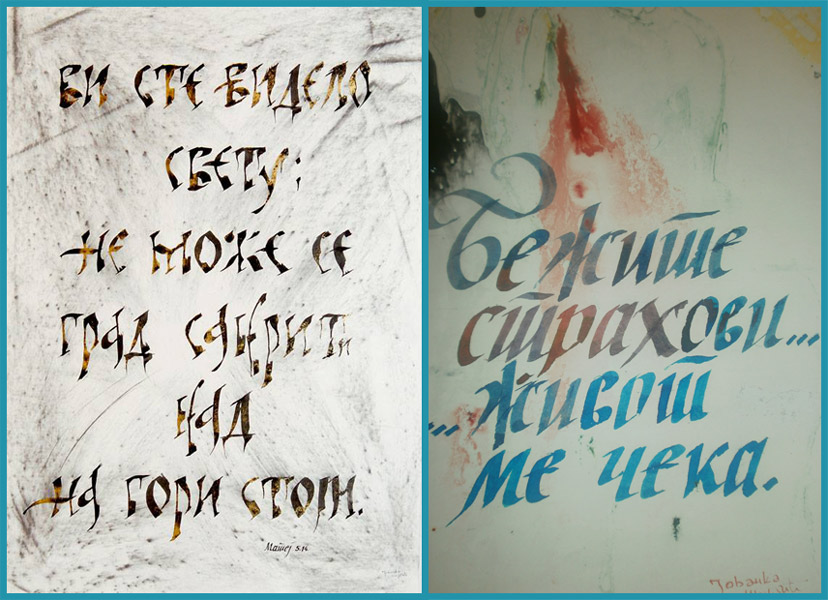 ви сте видело
свету:
не може се
град сакрити
кад
на гори стоји.
Матеј 5.14
Бежите
страхови...
...живот
ме чека.
Јованка